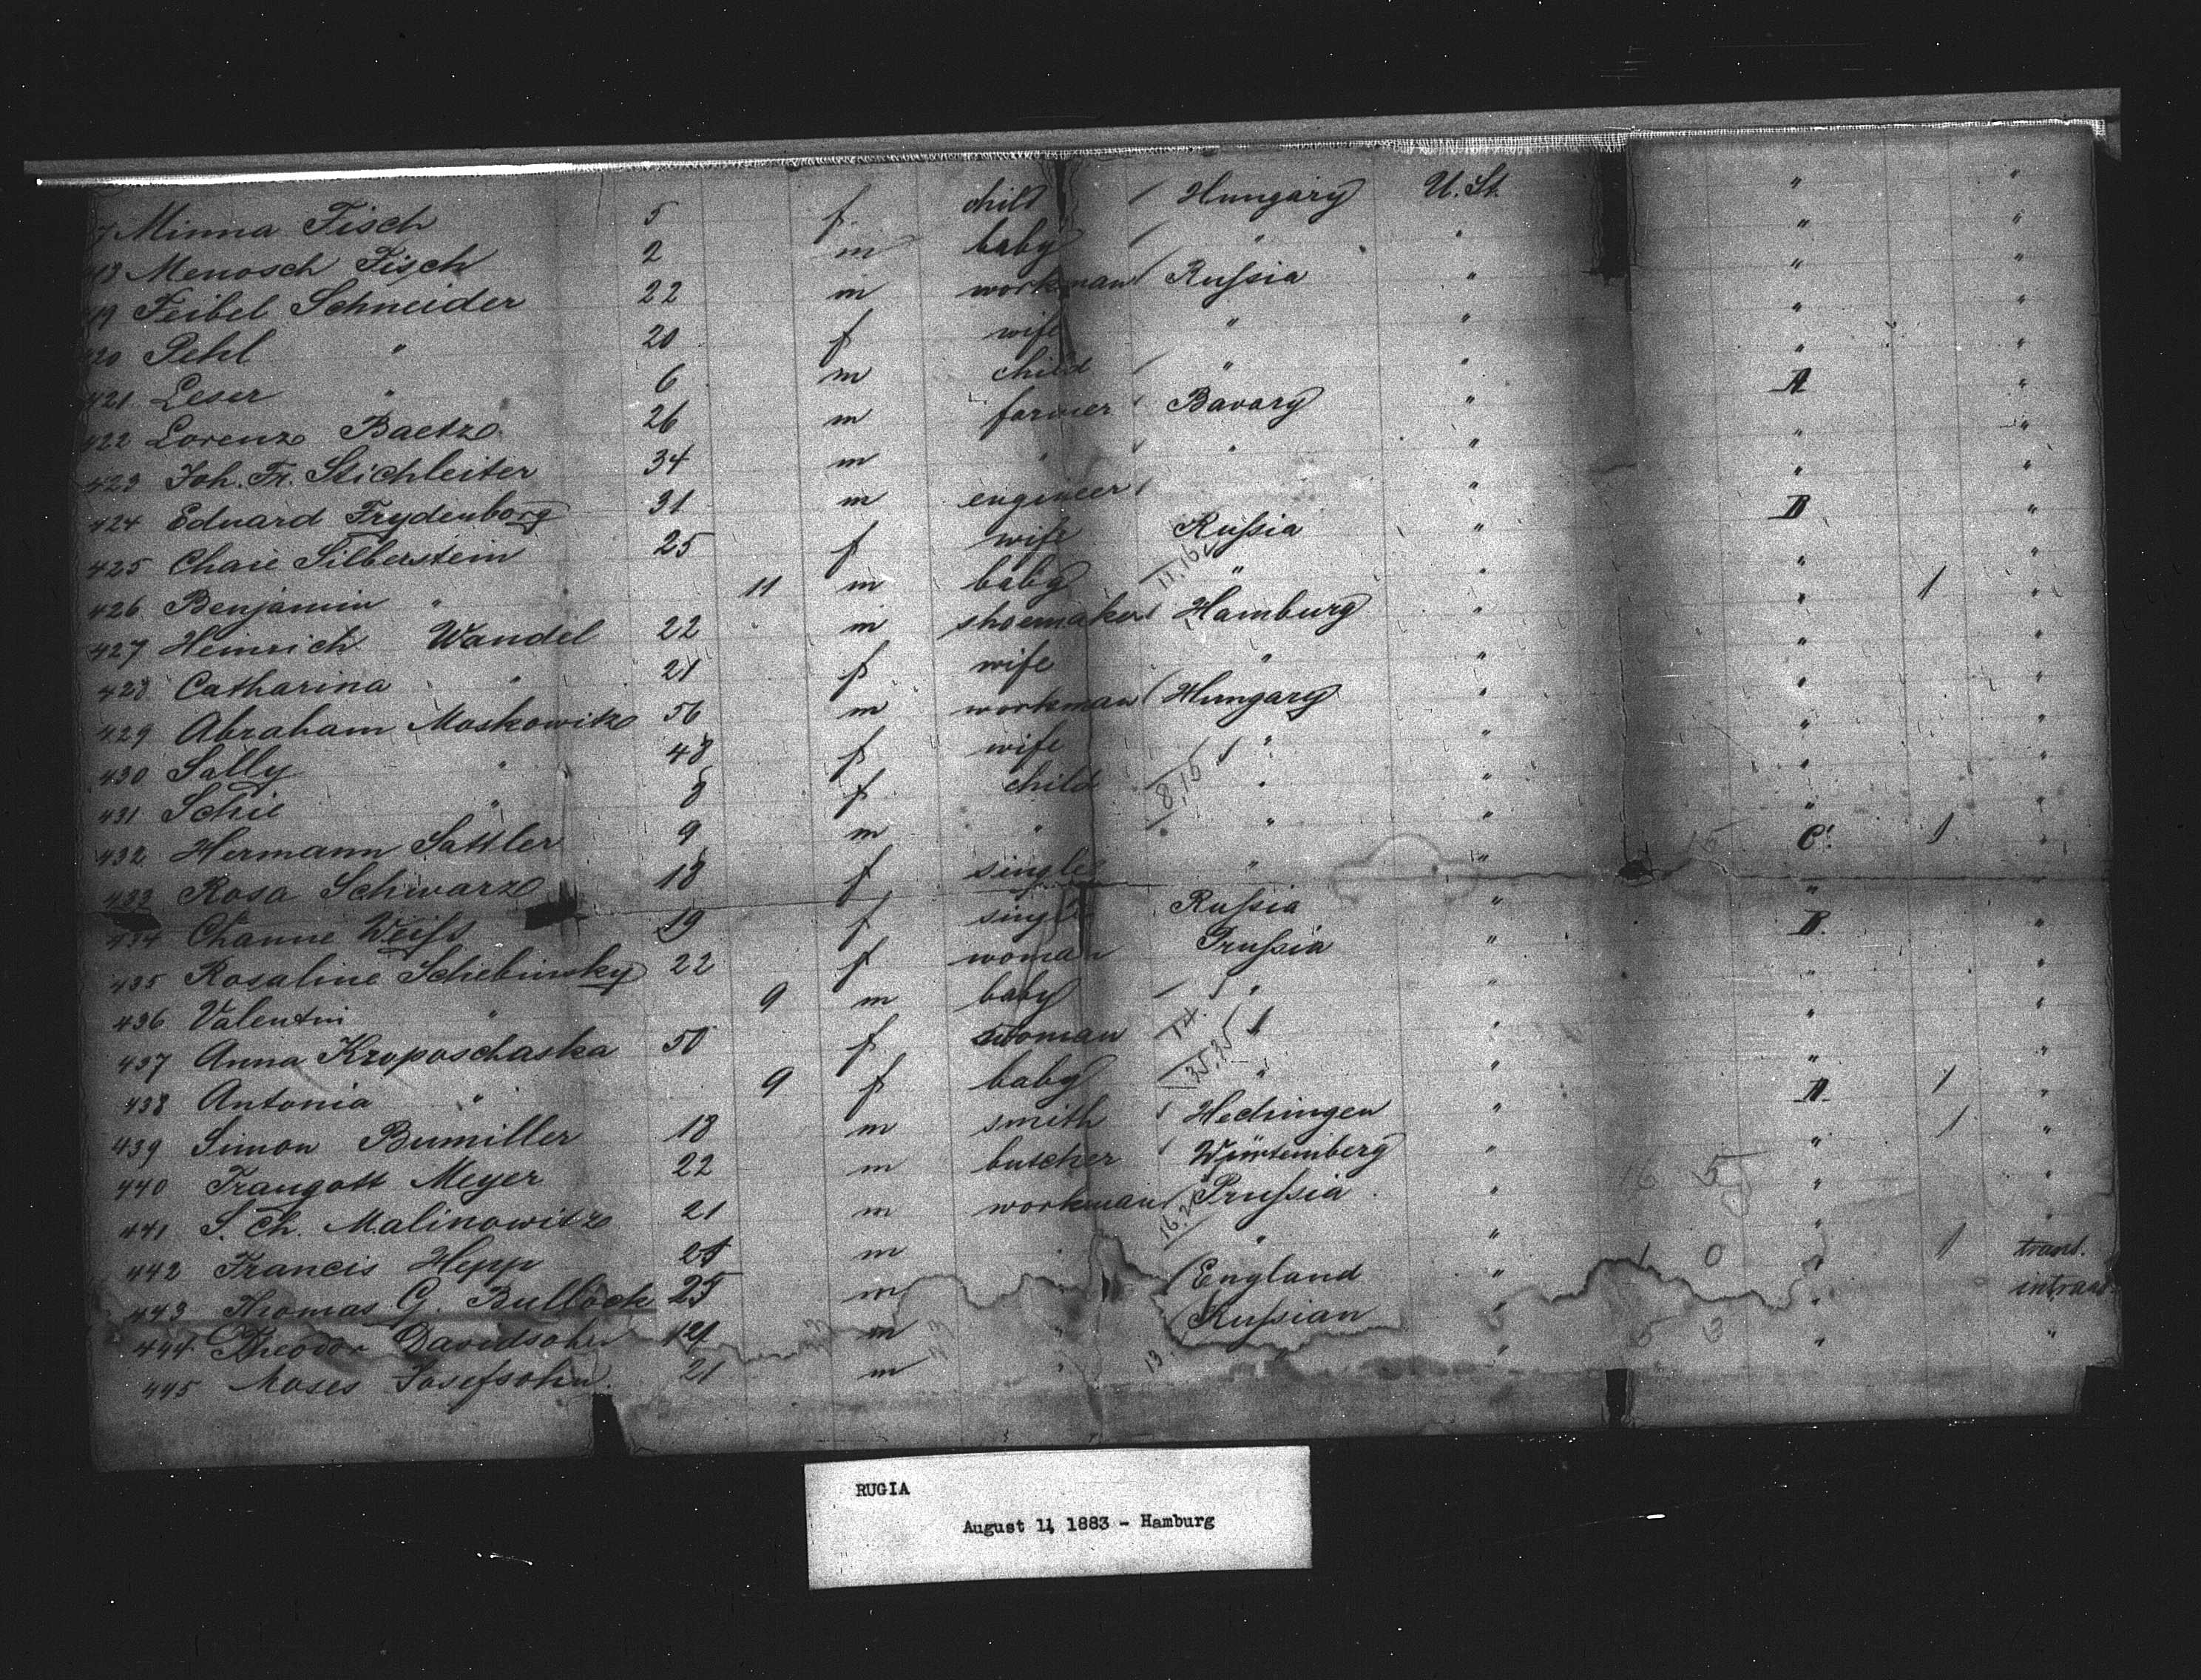 7 Minna Fisch 5 f child Hungary U. St. " "
418 Menosch Fisch 2 m baby " " " "
419 Feibel Schneider 22 m workman Russia " " "
420 Pehl " 20 f wife " " " "
421 Leser " 6 m child " " " "
422 Lorenz Baetz 26 m farmer Bavary " A "
423 Joh. Fr. Stichleiter 34 m " " " " "
424 Eduard Frydenborg 31 m engineer " " "
425 Chaie Silberstein 25 f wife Russia " B "
426 Benjamin " 11 m baby 11,16 " " " "
427 Heinrich Wandel 22 m shoemaker Hamburg " " 1 "
428 Catharina " 21 f wife " " " "
429 Abraham Moskowitz 56 m workman Hungary " " "
430 Sally " 48 f wife " " " "
431 Schie " 8 f child 8,15 " " " "
432 Hermann Sattler 9 m " " " " "
433 Rosa Schwarz 18 f single " " C. 1 "
434 Channe Weiss 19 f single Russia " "
435 Rosaline Schebinsky 22 f woman Prussia " B. "
436 Valentin " 9 m baby " " " "
437 Anna Kroposchaska 50 f woman 14. " " "
438 Antonia " 9 f baby 35,35 " " " "
439 Simon Bumiller 18 m smith Hechingen " A 1 "
440 Traugott Meyer 22 m butcher Würtemberg " " 1 "
441 S. Ch. Malinowitz 21 m workman Prussia " " "
442 Francis Hepp 21 m " " " " "
443 Thomas G. Bullock 25 m England " " 1 transt.
444 Theodor Davidsohn 21 m " Russian " " intrans
445 Moses Josefsohn 21 m " " " " "
RUGIA
August 11, 1883 - Hamburg